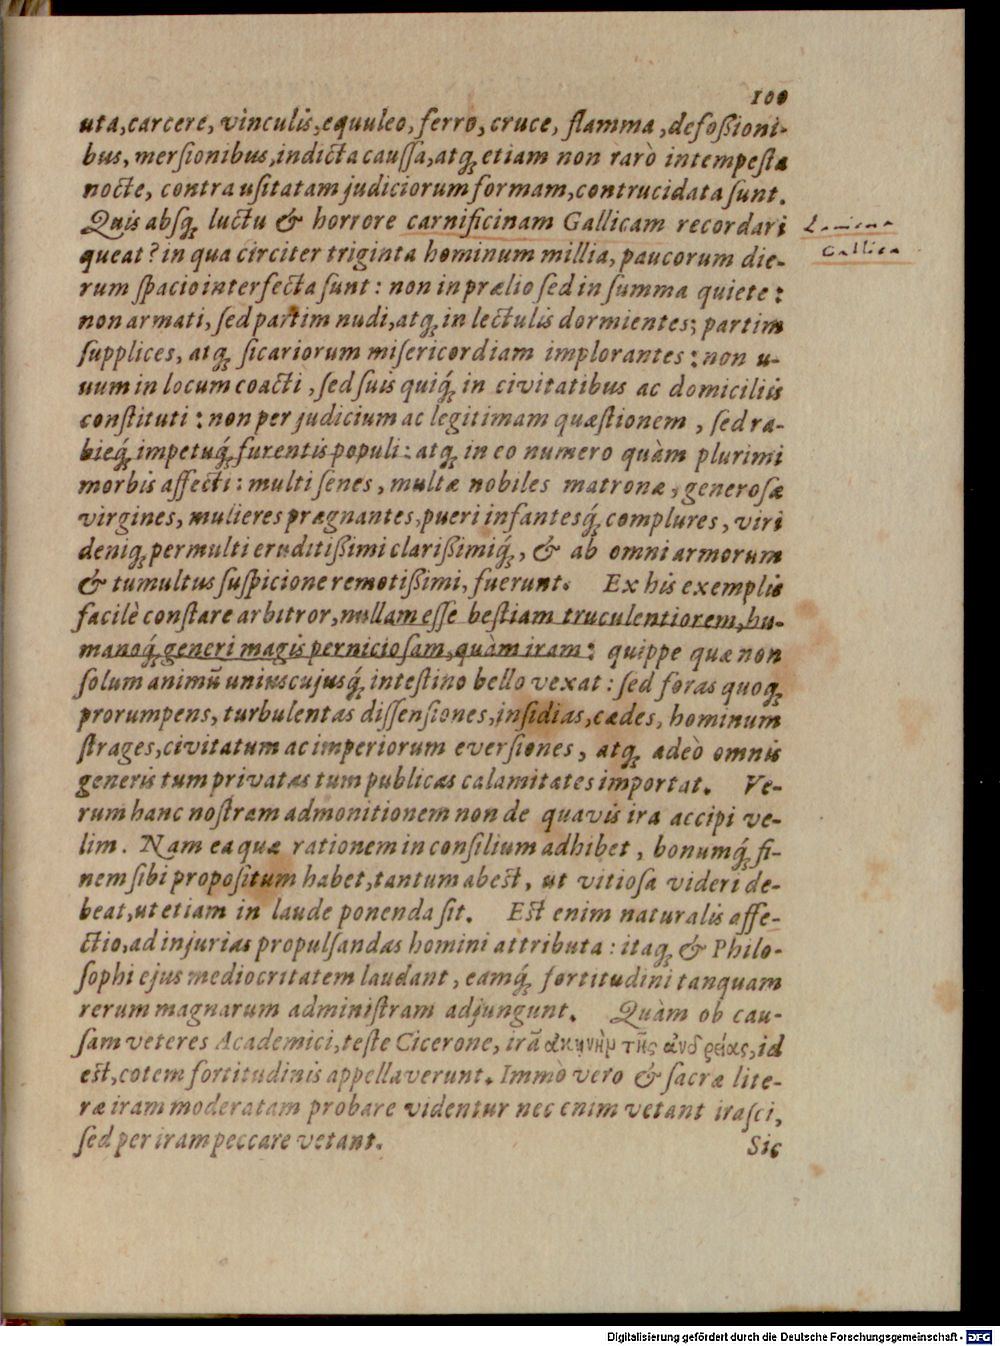 100
uta, carcere, vinculis, equuleo, ferro, cruce, flamma, defoßioni-
bus, mersionibus, indicta caussa, atq; etiam non rarò intempesta
nocte, contra usitatam judiciorum formam, contrucidata sunt.
Quis absq; luctu & horrore carnificinam Gallicam recordari
queat? in qua circiter triginta hominum millia, paucorum die-
rum spacio interfecta sunt: non in prælio sed in summa quiete:
non armati, sed partim nudi, atq; in lectulis dormientes; partim
supplices, atq; sicariorum misericordiam implorantes: non u-
uum in locum coacti, sed suis quiq́; in civitatibus ac domiciliis
constituti: non per judicium ac legitimam quæstionem, sed ra-
bieq́; impetuq́; furentis populi: atq; in eo numero quàm plurimi
morbis affecti: multi senes, multæ nobiles matronæ, generosæ
virgines, mulieres prægnantes, pueri infantesq́; complures, viri
deniq; permulti eruditißimi clarißimiq́;, & ab omni armorum
& tumultus suspicione remotißimi, fuerunt. Ex his exemplis
facilè constare arbitror, nullam esse bestiam truculentiorem, hu-
manoq́; generi magis perniciosam, quàm iram: quippe quæ non
solum animū uniuscujusq́; intestino bello vexat: sed foras quoq;
prorumpens, turbulentas dissensiones, insidias, cædes, hominum
strages, civitatum ac imperiorum eversiones, atq; adeò omnis
generis tum privatas tum publicas calamitates importat. Ve-
rum hanc nostram admonitionem non de quavis ira accipi ve-
lim. Nam ea quæ rationem in consilium adhibet, bonumq́; fi-
nem sibi propositum habet, tantum abest, ut vitiosa videri de-
beat, ut etiam in laude ponenda sit. Est enim naturalis affe-
ctio, ad injurias propulsandas homini attributa: itaq; & Philo-
sophi ejus mediocritatem laudant, eamq́; fortitudini tanquam
rerum magnarum administram adjungunt. Quàm ob cau-
sam veteres Academici, teste Cicerone, irā ἀκηνὴμ τῆς ἀνδρείας, id
est, cotem fortitudinis appellaverunt. Immò vero & sacræ lite-
ræ iram moderatam probare videntur nec enim vetant irasci,
sed per iram peccare vetant.
Sic
Laniena
Gallica
Digitalisierung gefördert durch die Deutsche Forschungsgemeinschaft - DFG